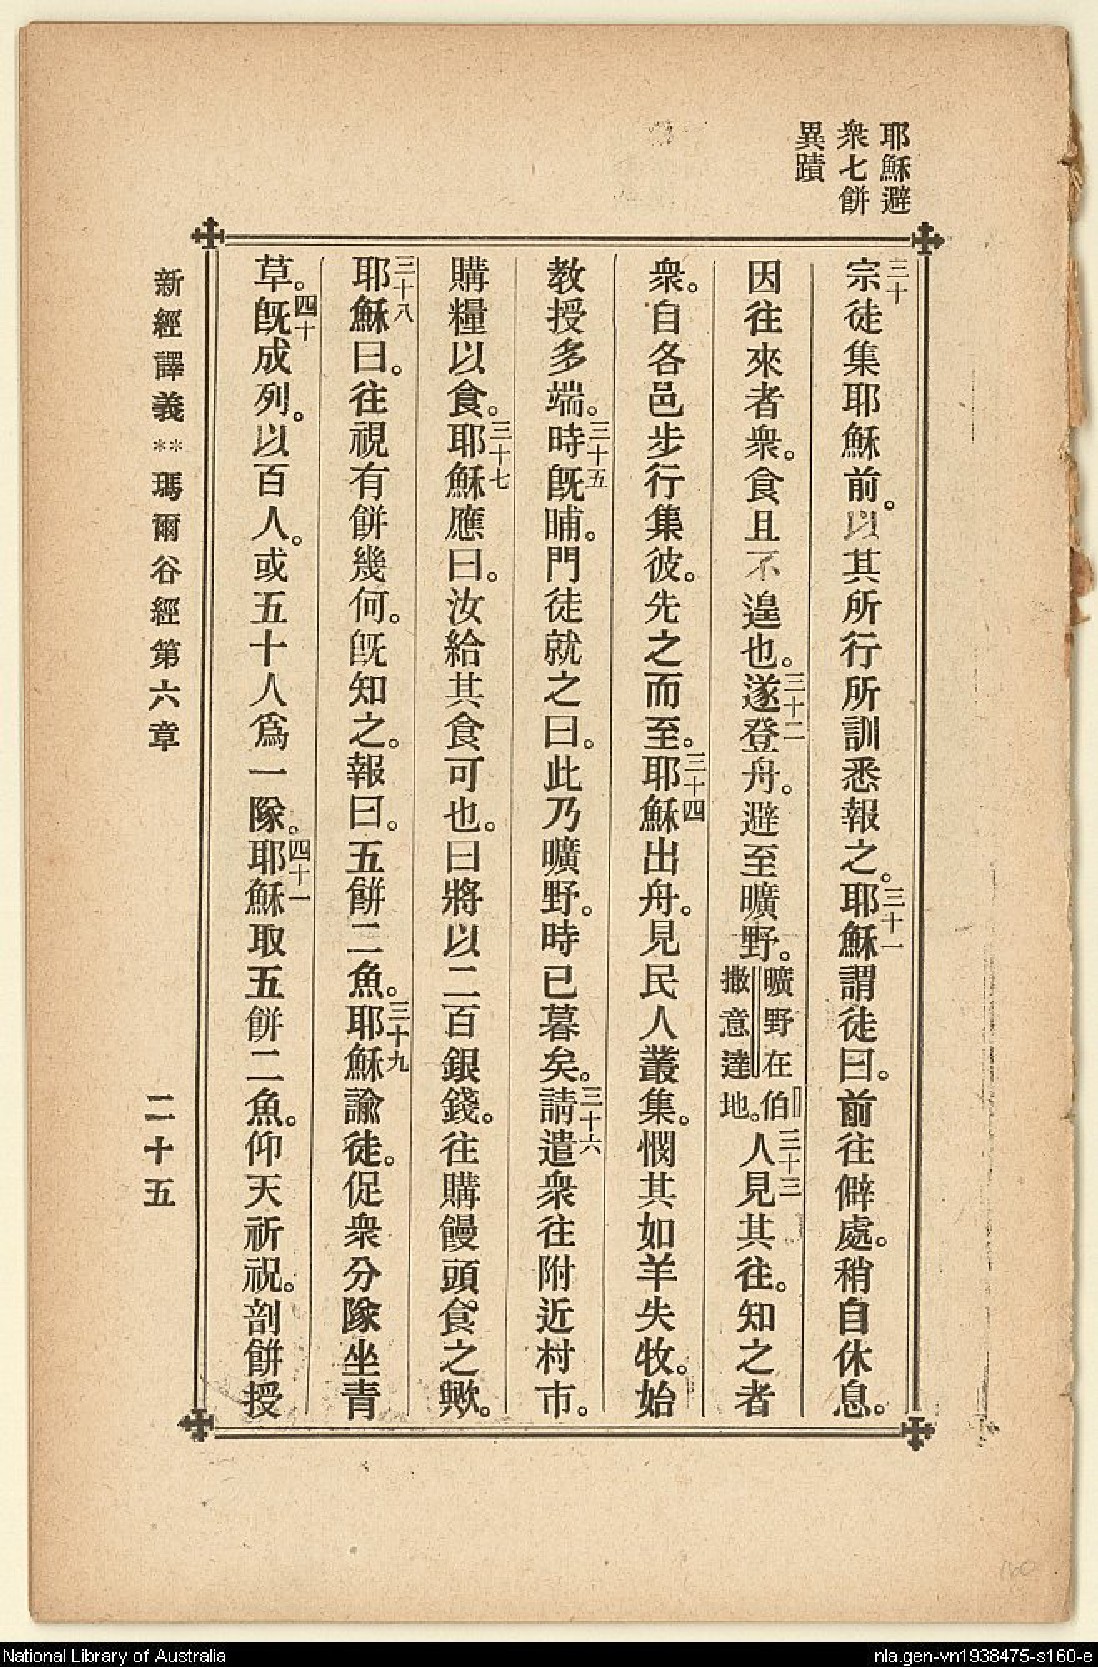 耶穌避
衆七餅
異蹟
三十宗徒集耶穌前。以其所行所訓悉報之。三十一耶穌謂徒曰。前往僻處。稍自休息。
因往來者衆。食且不遑也。三十二遂登舟。避至曠野。曠野在伯撒意達地。三十三人見其往。知之者
衆。自各邑步行集彼。先之而至。三十四耶穌出舟。見民人叢集。憫其如羊失牧。始
教授多端。三十五時旣晡。門徒就之曰。此乃曠野。時已暮矣。三十六請遣衆往附近村市。
購糧以食。三十七耶穌應曰。汝給其食可也。曰將以二百銀錢。往購饅頭食之歟。
三十八耶穌曰。往視有餅幾何。旣知之。報曰。五餅二魚。三十九耶穌諭徒。促衆分隊坐青
草。四十旣成列。以百人。或五十人爲一隊。四十一耶穌取五餅二魚。仰天祈祝。剖餅授
新經譯義**瑪爾谷經第六章 二十五
National Library of Australia
nla.gen-vn1938475-s160-e